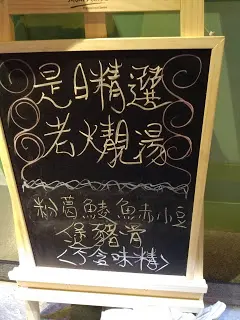 是日精選
老火靚湯
粉葛鯪魚赤小豆
煲豬骨
<不含味精>